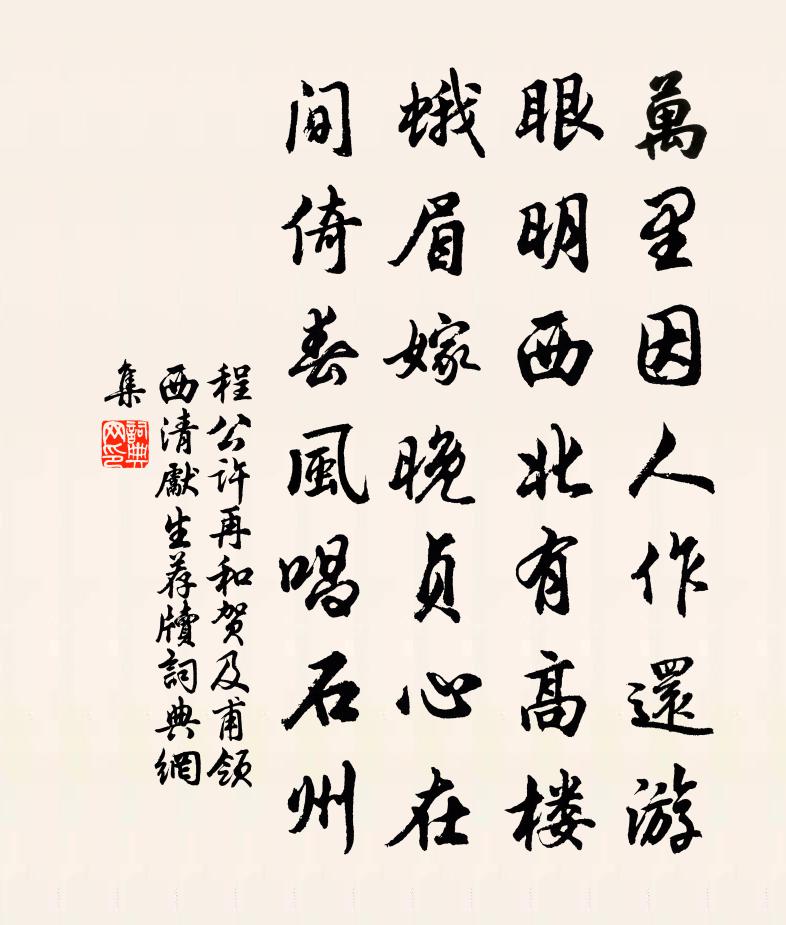 萬里因人作還游
眼明西北有高楼
蛾眉嫁晚貞心在
间倚春風唱石州
程公许再和贺及甫領
西清獻生荐牘詞典網
集
詞典
网印